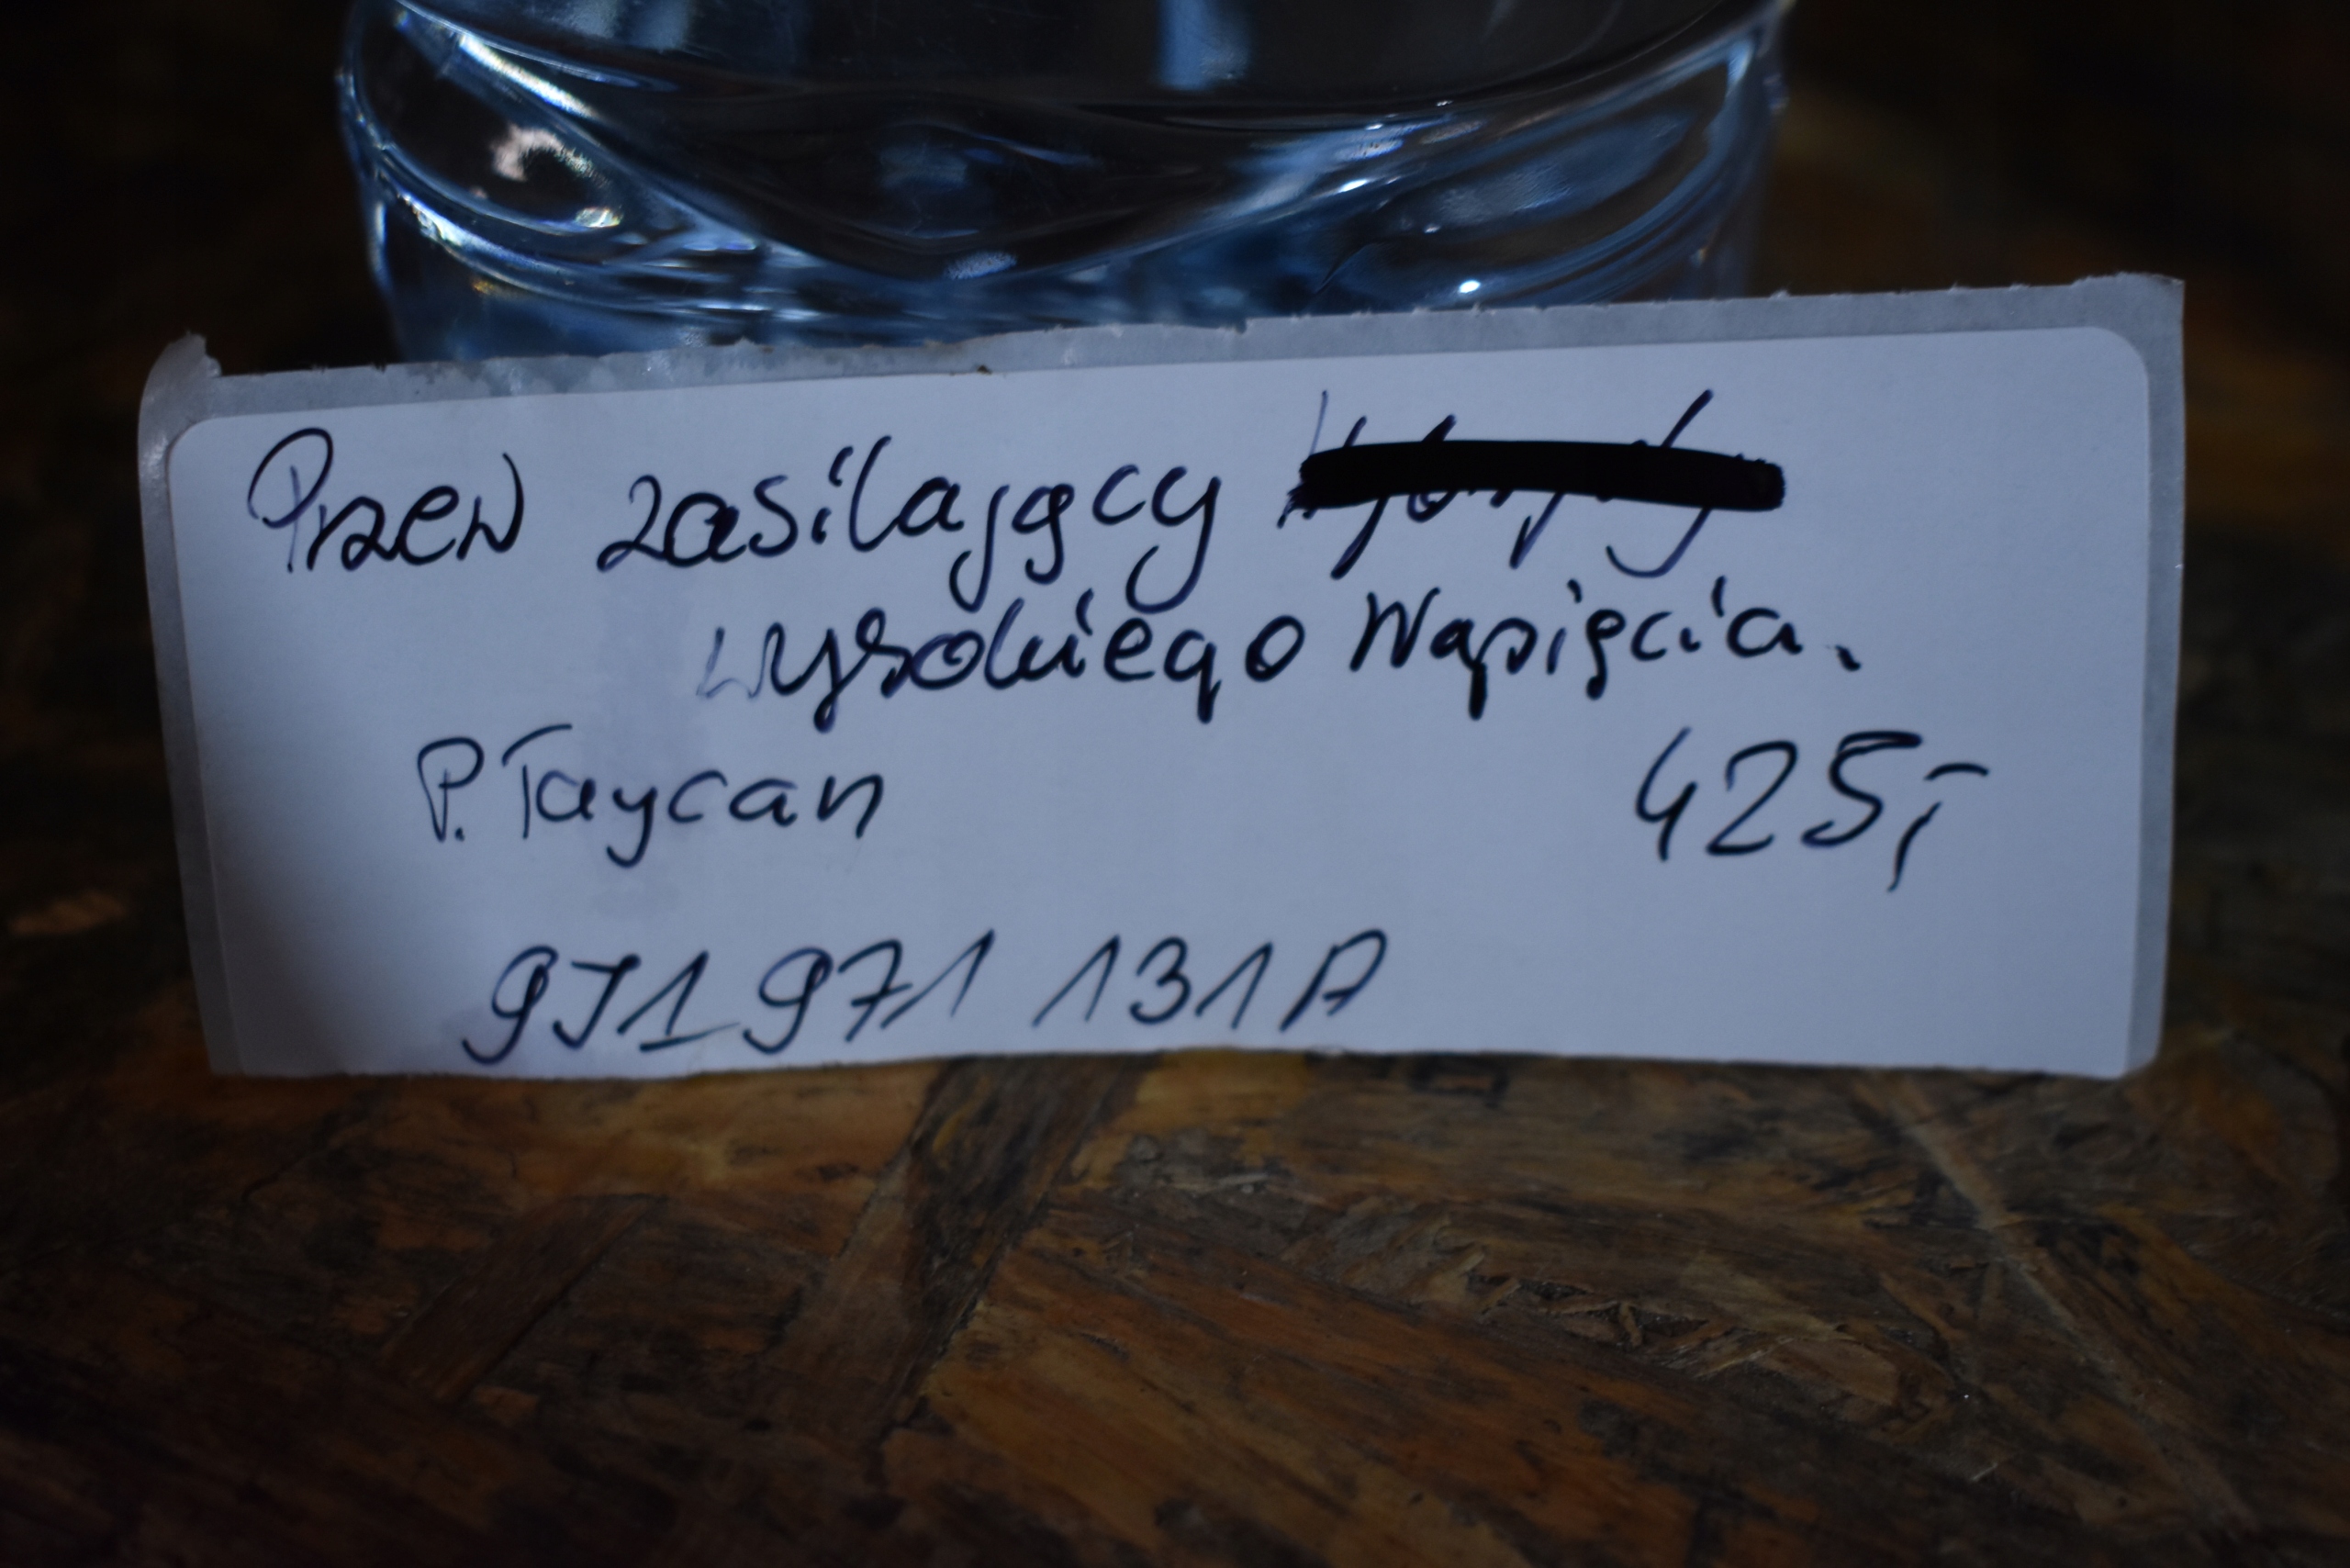 Przew zasilający
wysokiego Napięcia.
P. Taycan 425,-
9J1 971 131A